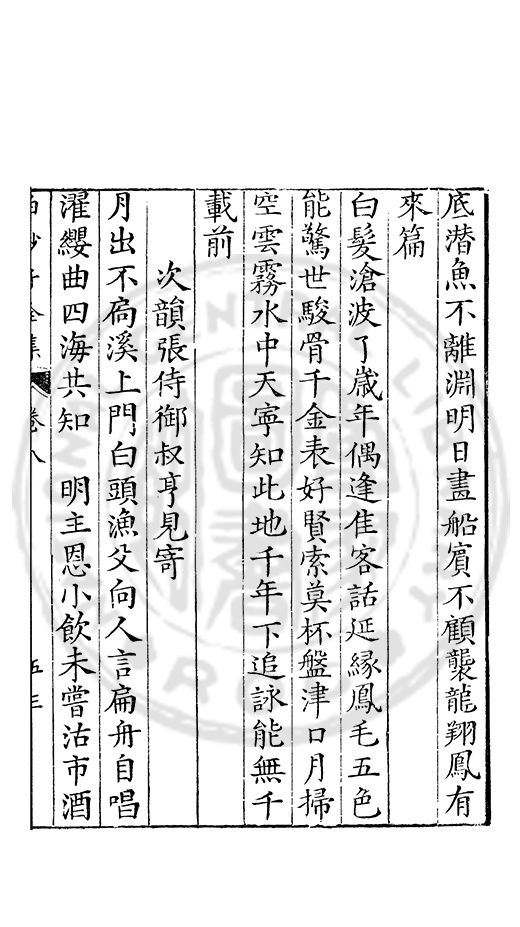 底潜魚不離淵明日畫船賓不顧襲龍翔鳳有
來篇
白髮滄波了歲年偶逢隹客話延緣鳳毛五色
能驚世駿骨千金表好賢索莫杯盤津口月掃
空雲霧水中天寧知此地千年下追詠能無千
載前
次韻張侍御叔亨見寄
月出不扃溪上門白頭漁父向人言扁舟自唱
濯纓曲四海共知　明主恩小飲未嘗沽市酒
卷八